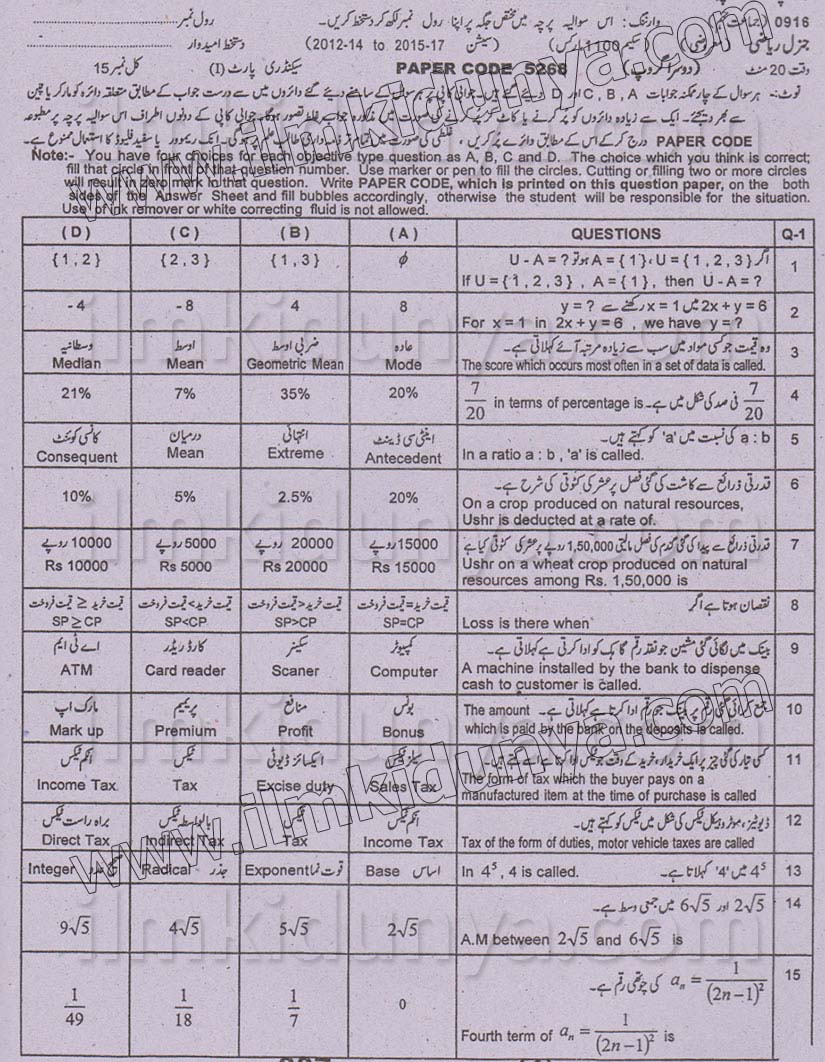 0916 وارننگ:۔ اس سوالیہ پرچہ میں مختص جگہ پر اپنا رول نمبر لکھ کر دستخط کریں۔ رول نمبر
جنرل ریاضی (معروضی) (سکیم 1100 مارکس) (سیشن 2012-14 to 2015-17) دستخط امیدوار
وقت 20 منٹ (دوسرا گروپ) PAPER CODE 5268 سیکنڈری پارٹ (I) کل نمبر 15
نوٹ:۔ ہر سوال کے چار ممکنہ جوابات A، B، C اور D دیئے گئے ہیں۔ جوابی کاپی پر ہر سوال کے سامنے دیئے گئے دائروں میں سے درست جواب کے مطابق متعلقہ دائرہ کو مارکر یا پین
سے بھر دیجئے۔ ایک سے زیادہ دائروں کو پُر کرنے یا کاٹ کر پُر کرنے کی صورت میں مذکورہ جواب غلط تصور ہوگا۔ جوابی کاپی کے دونوں اطراف اس سوالیہ پرچہ پر مطبوعہ
PAPER CODE درج کر کے اس کے مطابق دائرے پُر کریں، غلطی کی صورت میں تمام تر ذمہ داری طالب علم پر ہوگی۔ انک ریموور یا سفید فلیوڈ کا استعمال ممنوع ہے۔
Note:- You have four choices for each objective type question as A, B, C and D. The choice which you think is correct;
fill that circle in front of that question number. Use marker or pen to fill the circles. Cutting or filling two or more circles
will result in zero mark in that question. Write PAPER CODE, which is printed on this question paper, on the both
sides of the Answer Sheet and fill bubbles accordingly, otherwise the student will be responsible for the situation.
Use of ink remover or white correcting fluid is not allowed.
( D ) ( C ) ( B ) ( A ) QUESTIONS Q-1
{ 1 , 2 } { 2 , 3 } { 1 , 3 } ϕ اگر U = { 1 , 2 , 3 } ، A = { 1 } ہو تو U - A = ? 1
If U = { 1 , 2 , 3 } , A = { 1 } , then U - A = ?
- 4 - 8 4 8 2x + y = 6 میں x = 1 رکھنے سے y = ? 2
For x = 1 in 2x + y = 6 , we have y = ?
وسطانیہ اوسط ضربی اوسط عادہ وہ قیمت جو کسی مواد میں سب سے زیادہ مرتبہ آئے کہلاتی ہے۔ 3
Median Mean Geometric Mean Mode The score which occurs most often in a set of data is called.
21% 7% 35% 20% 7/20 فی صد کی شکل میں ہے۔ 7/20 in terms of percentage is 4
کانسی کوئنٹ درمیان انتہائی اینٹی سی ڈینٹ a : b کی نسبت میں 'a' کو کہتے ہیں۔ 5
Consequent Mean Extreme Antecedent In a ratio a : b , 'a' is called.
10% 5% 2.5% 20% قدرتی ذرائع سے کاشت کی گئی فصل پر عشر کی کٹوتی کی شرح ہے۔ 6
On a crop produced on natural resources,
Ushr is deducted at a rate of.
10000 روپے 5000 روپے 20000 روپے 15000 روپے قدرتی ذرائع سے پیدا کی گئی گندم کی فصل مالیتی 1,50,000 روپے پر عشر کی کٹوتی کیا ہے 7
Rs 10000 Rs 5000 Rs 20000 Rs 15000 Ushr on a wheat crop produced on natural
resources among Rs. 1,50,000 is
قیمت خرید ≥ قیمت فروخت قیمت خرید<قیمت فروخت قیمت خرید>قیمت فروخت قیمت خرید=قیمت فروخت نقصان ہوتا ہے اگر 8
SP ≥ CP SP<CP SP>CP SP=CP Loss is there when
اے ٹی ایم کارڈ ریڈر سکینر کمپیوٹر بینک میں لگائی گئی مشین جو نقد رقم گاہک کو ادا کرتی ہے کہلاتی ہے۔ 9
ATM Card reader Scaner Computer A machine installed by the bank to dispense
cash to customer is called.
مارک اپ پریمیم منافع بونس جمع کرائی گئی رقم پر بینک جو رقم ادا کرتا ہے کہلاتی ہے۔ The amount 10
Mark up Premium Profit Bonus which is paid by the bank on the deposits is called.
انکم ٹیکس ٹیکس ایکسائز ڈیوٹی سیلز ٹیکس کسی تیار کی گئی چیز پر ایک خریدار، خرید کے وقت جو ٹیکس ادا کرتا ہے اسے کہتے ہیں۔ 11
Income Tax Tax Excise duty Sales Tax The form of tax which the buyer pays on a
manufactured item at the time of purchase is called
براہ راست ٹیکس بالواسطہ ٹیکس ٹیکس انکم ٹیکس ڈیوٹیز، موٹر وہیکل ٹیکس کی شکل میں ٹیکس کو کہتے ہیں۔ 12
Direct Tax Indirect Tax Tax Income Tax Tax of the form of duties, motor vehicle taxes are called
Integer صحیح عدد Radical جذر Exponent قوت نما Base اساس In 4⁵ , 4 is called. 4⁵ میں '4' کہلاتا ہے۔ 13
9√5 4√5 5√5 2√5 2√5 اور 6√5 میں جمعی وسط ہے۔ 14
A.M between 2√5 and 6√5 is
1/49 1/18 1/7 0 aₙ = 1/(2n−1)² کی چوتھی رقم ہے۔ 15
Fourth term of aₙ = 1/(2n−1)² is
www.ilmkidunya.com